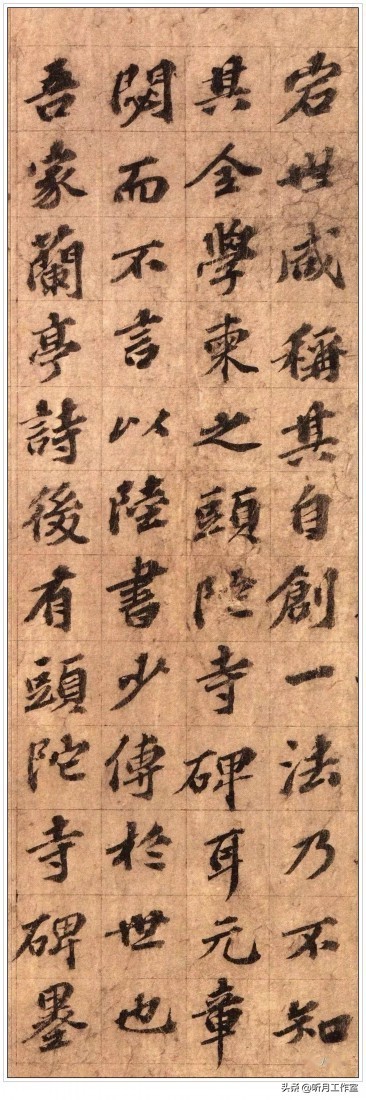 宕世咸稱其自創一法乃不知
其全學柬之頭陀寺碑耳元章
閟而不言以陸書少傳於世也
吾家蘭亭詩後有頭陀寺碑墨
头条 @听月工作室